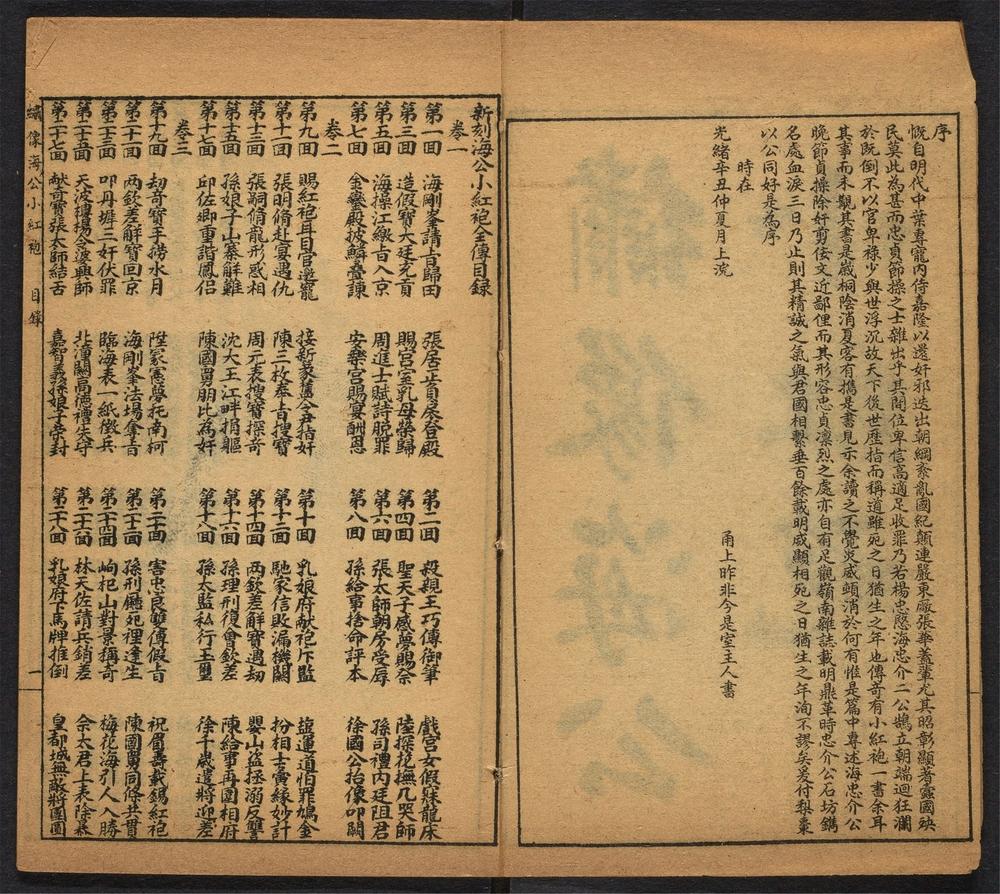 序
慨自明代中葉專寵內侍嘉隆以還奸邪迭出朝綱紊亂國紀顛連嚴東廠張華蓋輩尤其昭彰顯著蠹國殃
民莫此為甚而忠貞節操之士雜出乎其間位卑信高適足收罪乃若楊忠愍海忠介二公鵠立朝端迴狂瀾
於既倒不以官卑祿少與世浮沉故天下後世歷指而稱道雖死之日猶生之年也傳奇有小紅袍一書余耳
其事而未覩其書是歲桐陰消夏客有攜是書見示余讀之不覺炎威頓消於何有惟是篇中專述海忠介公
晚節貞操除奸剪佞文近鄙俚而其形容忠貞凜烈之處亦自有足觀嶺南雜誌載明鼎革時忠介公石坊鐫
名處血淚三日乃止則其精誠之氣與君國相繫垂百餘載明威顯相死之日猶生之年洵不謬矣爰付梨棗
以公同好是為序
時在
光緒辛丑仲夏月上浣
甬上昨非今是室主人書
新刻海公小紅袍全傳目錄
卷一
第一回 海剛峯請旨歸田 張居正責杖登殿 第二回 殺親王巧傳御筆 戲宮女假寐龍床
第三回 造假寶大廷充貢 賜宮室乳母榮歸 第四回 聖天子感夢賜祭 陸探花撫几哭師
第五回 海操江繳旨入京 周進士賦詩脫罪 第六回 張太師朝房受辱 孫司禮內廷阻君
第七回 金鑾殿披鱗疊諫 安樂宮賜宴酬恩 第八回 孫給事捨命評本 徐國公抬像叩閽
卷二
第九回 賜紅袍耳目官邀寵 接新篆舊令尹指奸 第十回 乳娘府獻袍下監 鹽運道怕罪鳩金
第十一回 張明脩赴宴遇仇 陳三枚奉旨搜寶 第十二回 馳家信敗漏機關 扮相士夤緣妙計
第十三回 張嗣脩龍形惑相 周元表搜寶探奇 第十四回 兩欽差解寶遇劫 嬰山盜拯溺反讐
第十五回 孫娘子山寨解難 沈大王江畔捐軀 第十六回 孫理刑復會欽差 陳給事再圍相府
第十七回 邱佐卿重諧鳳侶 陳國舅朋比為奸 第十八回 孫太監私行玉璽 徐千歲遣將迎差
卷三
第十九回 劫奇寶手撈水月 陞冢憲夢托南柯 第二十回 害忠良雙傳假旨 祝眉壽載錫紅袍
第二十一回 兩欽差解寶回京 海剛峯法場奪旨 第二十二回 孫刑廳死裡逢生 陳國舅同條共貫
第二十三回 叩丹墀三奸伏罪 臨海表一紙徵兵 第二十四回 峋杞山對景稱奇 梅花海引人入勝
第二十五回 天波樓楊令婆興師 北潼關高德禮失守 第二十六回 林天佐請兵銷差 佘太君上表除暴
第二十七回 獻奇寶張太師結舌 嘉智義孫娘子榮封 第二十八回 乳娘府下馬牌推倒 皇都城無敵將團圓
繡像海公小紅袍 目錄 一